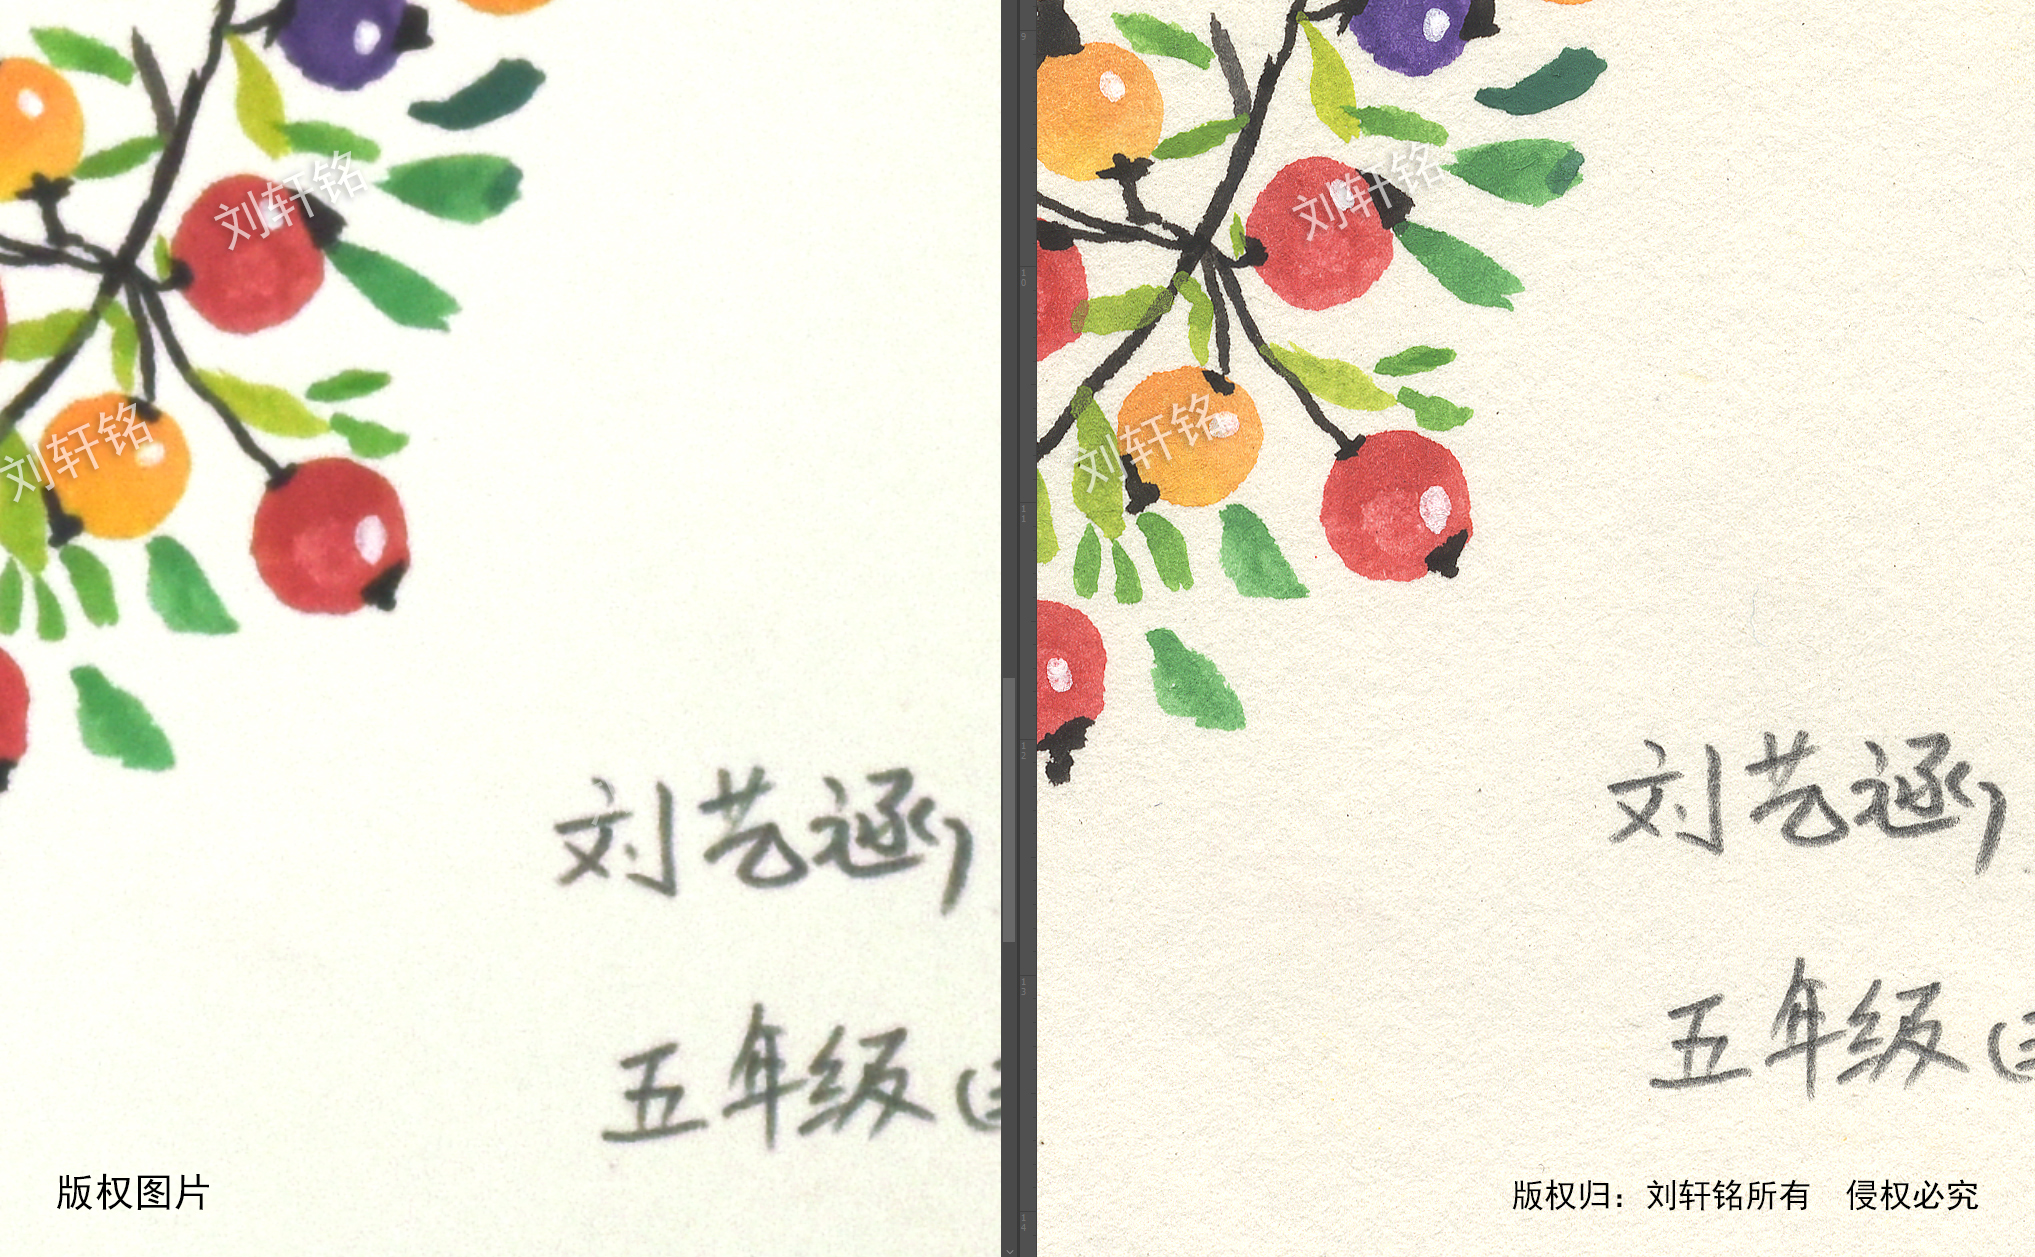 刘轩铭
刘轩铭
刘艺涵
五年级
版权图片
9
10
11
12
13
14
刘轩铭
刘轩铭
刘艺涵
五年级
版权归：刘轩铭所有 侵权必究